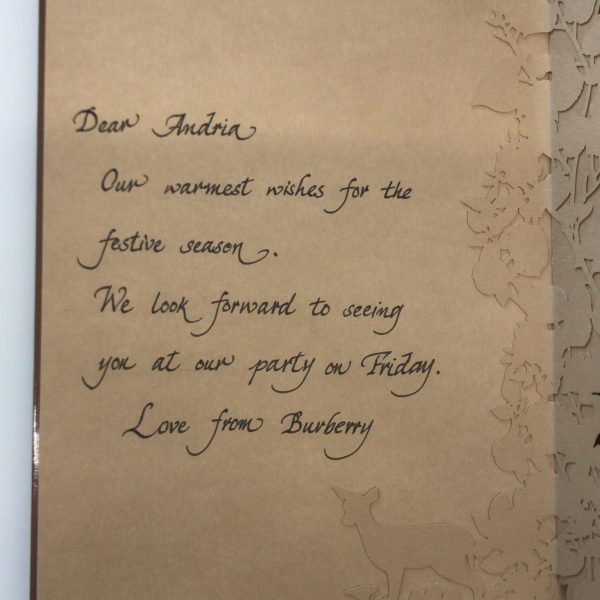 Dear Andria
Our warmest wishes for the
festive season.
We look forward to seeing
you at our party on Friday.
Love from Burberry